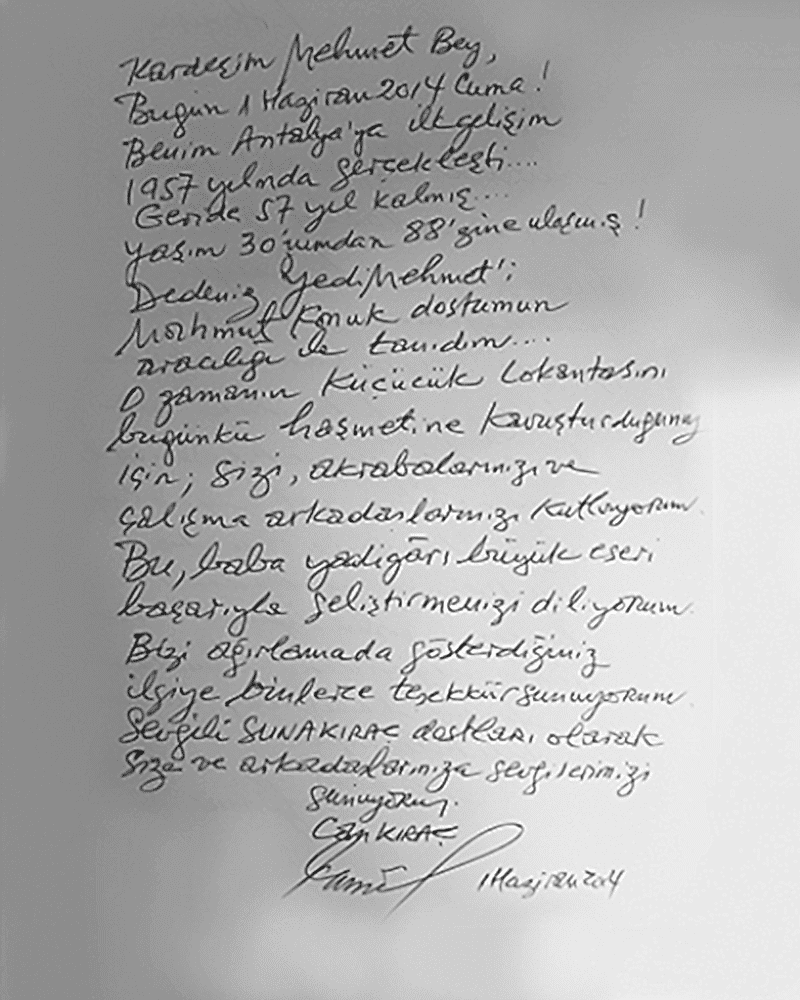 Kardeşim Mehmet Bey,
Bugün 1 Haziran 2014 Cuma!
Benim Antalya'ya ilk gelişim
1957 yılında gerçekleşti....
Geride 57 yıl kalmış....
yaşım 30'umdan 88'zine ulaşmış!
Dedeniz Yedi Mehmet'i
Mahmut Konuk dostumun
aracılığı ile tanıdım....
O zamanın küçücük Lokantasını
bugünkü haşmetine kavuşturduğunuz
için; sizi, akrabalarınızı ve
çalışma arkadaşlarınızı kutluyorum.
Bu, baba yadigârı büyük eseri
başarıyla geliştirmenizi diliyorum.
Bizi ağırlamada gösterdiğiniz
ilgiye binlerce teşekkür sunuyorum.
Sevgili SUNA KIRAÇ dostları olarak
Size ve arkadaşlarınıza sevgilerimizi
sunuyoruz.
Can KIRAÇ
1 Haziran 2014